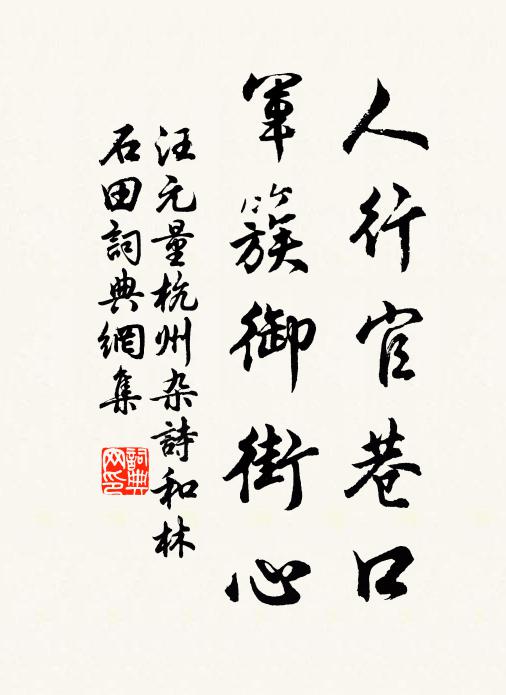 人行官巷口
軍簇御街心
汪元量杭州杂詩和林
石田詞典網集
詞典网印